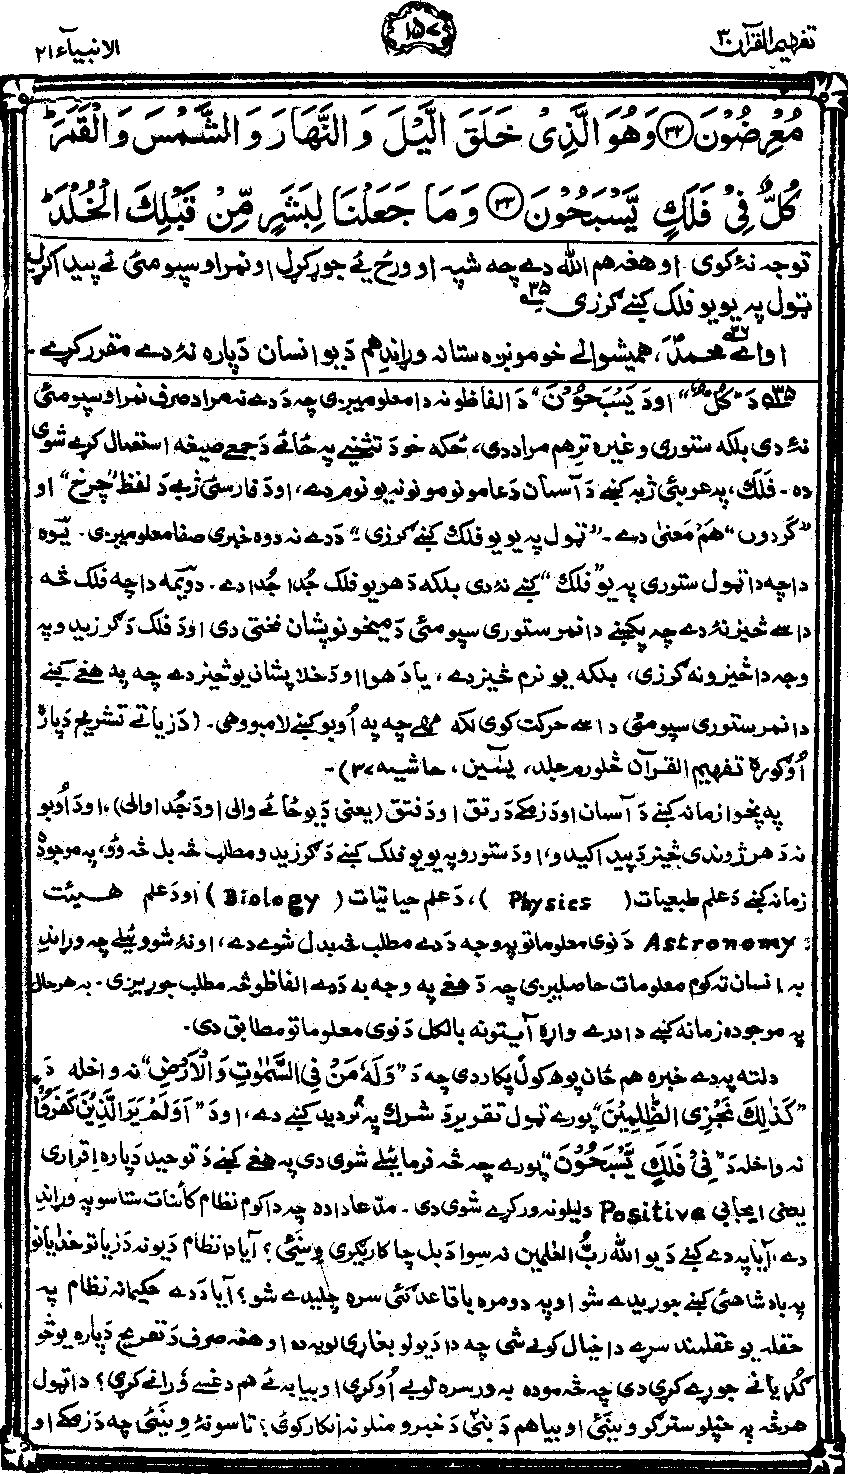 تفهیم القرآن ۳
۱۵۷
الانبیآء ۲۱
مُعْرِضُوْنَ ۳۲ وَهُوَ الَّذِیْ خَلَقَ الَّیْلَ وَالنَّهَارَ وَالشَّمْسَ وَالْقَمَرَ ؕ
كُلٌّ فِیْ فَلَكٍ یَّسْبَحُوْنَ ۳۳ وَمَا جَعَلْنَا لِبَشَرٍ مِّنْ قَبْلِكَ الْخُلْدَ ؕ
توجه نۀ کوی۔ او هغه هم الله دے چه شپه او ورځ یے جوړ کړل او نمر او سپوږمئ ئے پیدا کړل
ټول په یو یو فلک کښے ګرزی ۳۵
اواے محمدؐ ۳۶، همیشوالے خو مونږه ستا نه وړاندے هم د یو انسان دپاره نۀ دے مقرر کړے۔
۳۵ د "كُلٌّ" او د یَسْبَحُوْنَ" د الفاظو نه دا معلومیږی چه د دے نه مراد صرف نمر او سپوږمئ
نۀ دی بلکه ستوری وغیره ترے هم مراد دی، ځکه خو د تثنیے په ځائے د جمعے صیغه استعمال کړے شوی
ده۔ فَلَک، په عربئ ژبه کښے د آسمان د عامو نومونو نه یو نوم دے، او د فارسئ ژبے د لفظ "چرخ" او
"گردوں" هم معنیٰ دے۔ "ټول په یو یو فلک کښے ګرزی" د دے نه دوه خبرے صفا معلومیږی۔ یوه
دا چه دا ټول ستوری په یو "فلک" کښے نۀ دی بلکه د هر یو فلک جُدا جُدا دے۔ دویمه دا چه فلک څه
داسے څیز نۀ دے چه پکښے دا نمر ستوری سپوږمئ د میخونو پشان ښختی دی او د فلک د ګرزیدو په
وجه دا څیزونه ګرزی، بلکه یو نرم څیز دے، یا د هوا او د خلا پشان یو څیز دے چه په هغے کښے
دا نمر ستوری سپوږمئ داسے حرکت کوی لکه مهے چه په اُوبو کښے لامبو وهی۔ (د زیاتے تشریح دپاره
اُوګوره تفهیم القرآن څلورم جلد، یٰسٓین، حاشیه ۳۷)۔
په پخوا زمانه کښے د آسمان او د زمکے د رتق او د فتق (یعنی د یو ځائے والی او د جُدا والی)، او د اُوبو
نه د هر ژوندی څیز د پیدا کیدو، او د ستورو په یو یو فلک کښے د ګرزیدو مطلب څه بل څه وؤ، په موجوده
زمانه کښے د علم طبعیات (Physics)، د علم حیاتیات (Biology) او د علم هیئت
Astronomy: د نوی معلوماتو په وجه د دے مطلب څه بدل شوے دے، او نۀ شو وئیلے چه وړاندے
به انسان ته کوم معلومات حاصلیږی چه د هغے په وجه به د دے الفاظو څه مطلب جوړیږی۔ بهرحال
په موجوده زمانه کښے دا درے واړه آیتونه بالکل د نوی معلوماتو مطابق دی۔
دلته په دے خبره هم ځان پوهه کول پکار دی چه د "وَلَهٗ مَنْ فِی السَّمٰوٰتِ وَالْاَرْضِ" نه واخله د
"كَذٰلِكَ نَجْزِی الظّٰلِمِیْنَ" پورے ټول تقریر د شرک په تردید کښے دے، او د "اَوَلَمْ یَرَ الَّذِیْنَ كَفَرُوْا"
نه واخله د "فِیْ فَلَكٍ یَّسْبَحُوْنَ" پورے چه څه فرمائیلے شوی دی په هغے کښے د توحید دپاره اقراری
یعنی ایجابی Positive دلیلونه ورکړے شوی دی۔ مدّعا دا ده چه دا کوم نظام کائنات ستاسو په وړاندے
دے، آیا په دے کښے د یو الله ربّ العٰلمین نه سوا د بل چا کاریګری وینئ؟ آیا دا نظام د یو نه د زیاتو خدایانو
په بادشاهئ کښے جوړیدے شو او په دومره باقاعدګئ سره چلیدے شو؟ آیا د دے حکیمانه نظام په
حقله یو عقلمند سړے دا خیال کولے شی چه دا د یو لوبغاړی لوبه ده او هغه صرف د تفریح دپاره یو څو
ګډیانے جوړے کړی دی چه څه موده به ورسره لوبے اُوکړی او بیا به ئے هم دغسے ذرانے کړی؟ دا ټول
هر څه په خپلو سترګو وینئ او بیا هم د نبئ د خبرو منلو نه انکار کوئ؟ تاسو نۀ وینئ چه د زمکے او